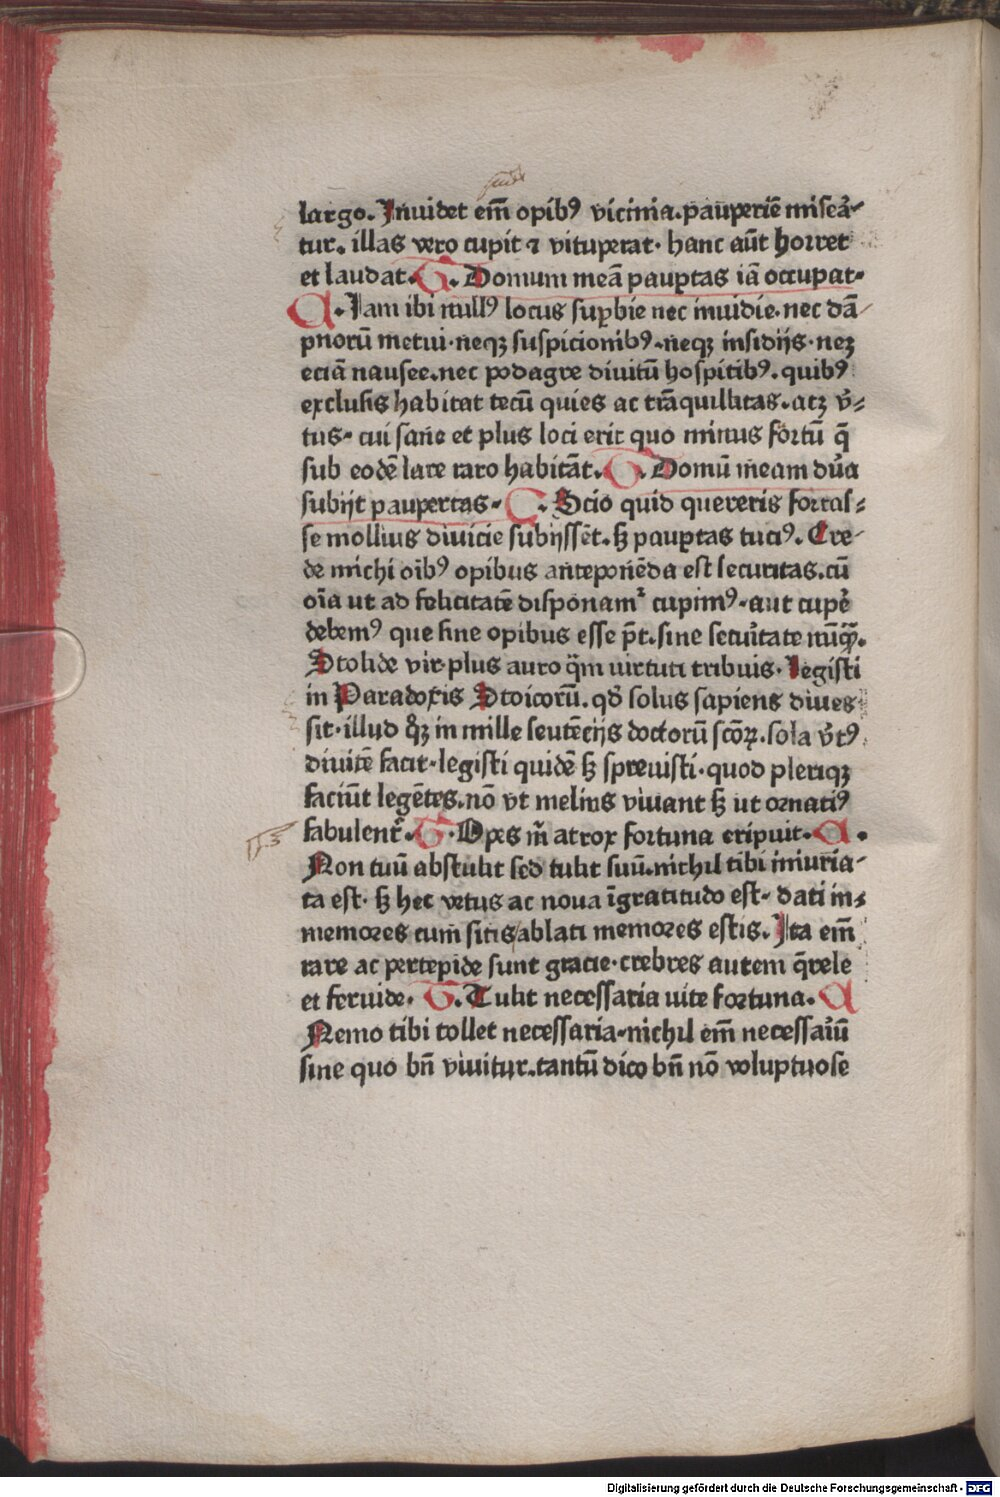 largo. Inuidet em̄ opibꝰ vicinia. pauperiē miseā⸗
tur. illas vero cupit ⁊ vituperat. hanc aūt horret
et laudat. G. Domum meā paupꝛtas iā occupat⸗
A. Iam ibi nullꝰ locus suꝑbie nec inuidie. nec dā⸗
pnorū metui. neqꝫ suspicionibꝰ. neqꝫ insidijs. neꝫ
eciā nausee. nec podagre diuitū hospitibꝰ. quibꝰ
exclusis habitat tecū quies ac trāquillitas. atꝫ v̄⸗
tus. cui sane et plus loci erit quo minus fortū q̄
sub eodē lare raro habitāt. G. Domū meam dūa
subijt paupertas. C. Ocio quid quereris fortas⸗
se mollius diuicie subijssēt. sꝫ paupꝛtas tuciꝰ. Cre⸗
de michi oībꝰ opibus anteponēda est securitas. cū
oīa ut ad felicitatē disponamꝰ cupimꝰ. aut cupē
debemꝰ que sine opibus esse p̄t. sine secūitate nūꝙ̄.
Stolide vir. plus auro q̄m uirtuti tribuis. Legisti
in Paradoxis Stoicorū. qd̄ solus sapiens diues
sit. illud q̄ꝫ in mille seutēcijs doctorū scōꝝ. sola v̄tꝰ
diuitē facit. legisti quidē sꝫ spreuisti. quod pleriqꝫ
faciūt legētes. nō vt melius viuant sꝫ ut ornatiꝰ
fabulent̄. G. Opes m̄ atrox fortuna eripuit. A.
Non tuū abstulit sed tulit suū. nichil tibi iniuria⸗
ta est. sꝫ hec vetus ac noua īgratitudo est. dati in⸗
memores cum sitis ablati memores estis. Ita em̄
rare ac pertepide sunt gracie. crebres autem q̄rele
et feruide. G. Tulit necessaria uite fortuna. A
Nemo tibi tollet necessaria. nichil em̄ necessāiū
sine quo bn̄ viuitur. tantū dico bn̄ nō voluptuose
Digitalisierung gefördert durch die Deutsche Forschungsgemeinschaft - DFG